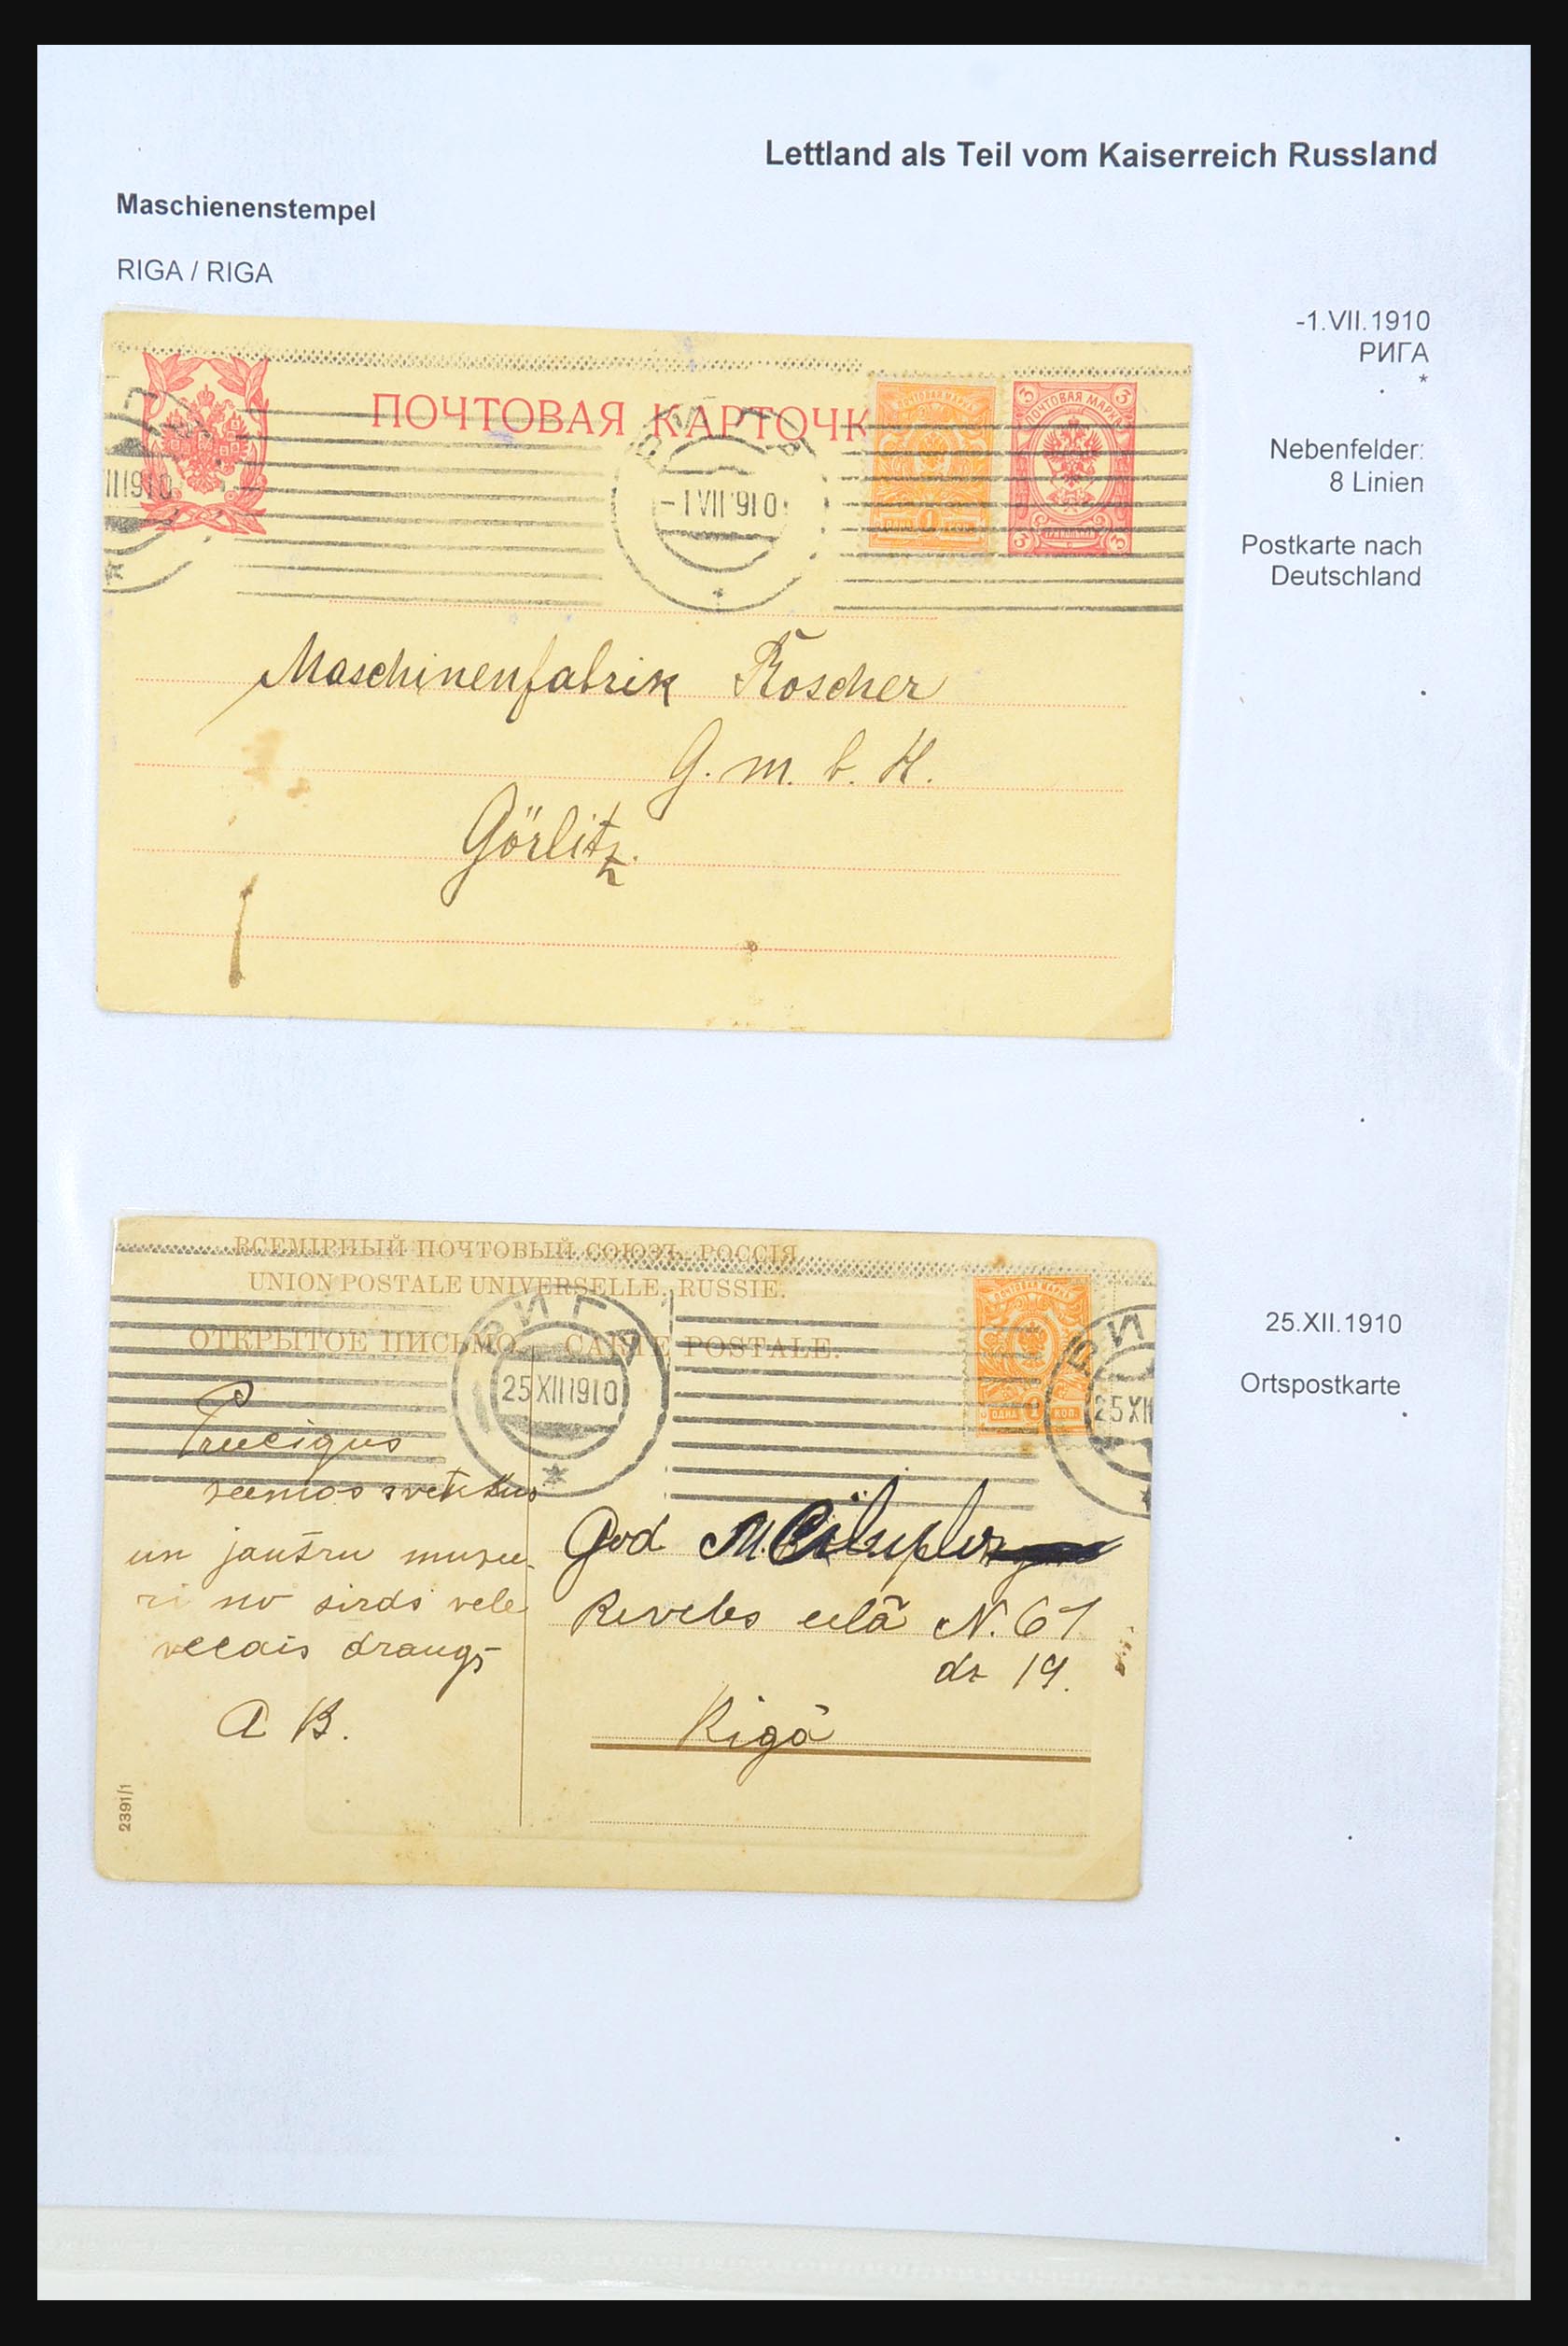 Lettland als Teil vom Kaiserreich Russland
Maschienenstempel
RIGA / RIGA
-1.VII.1910
РИГА
*
Nebenfelder:
8 Linien
Postkarte nach
Deutschland
ПОЧТОВАЯ КАРТОЧК
ПОЧТОВАЯ МАРКА
3
3
1
3
3
-1 VII 1910
Maschinenfabrik Roscher
G. m. b. H.
Görlitz.
25.XII.1910
Ortspostkarte
ВСЕМІРНЫЙ ПОЧТОВЫЙ СОЮЗЪ. РОССІЯ
UNION POSTALE UNIVERSELLE. RUSSIE.
ОТКРЫТОЕ ПИСЬМО. CARTE POSTALE.
ПОЧТОВАЯ МАРКА
ОДНА 1 КОП.
РИГ
25 XII 1910
РИ
25 XII
Preecigus
seemas svetkus
un jautru
no sirds vele
vecais draugs
A B.
God M.
Reveles eelā N. 67
dz 19.
Rigā
2391/1